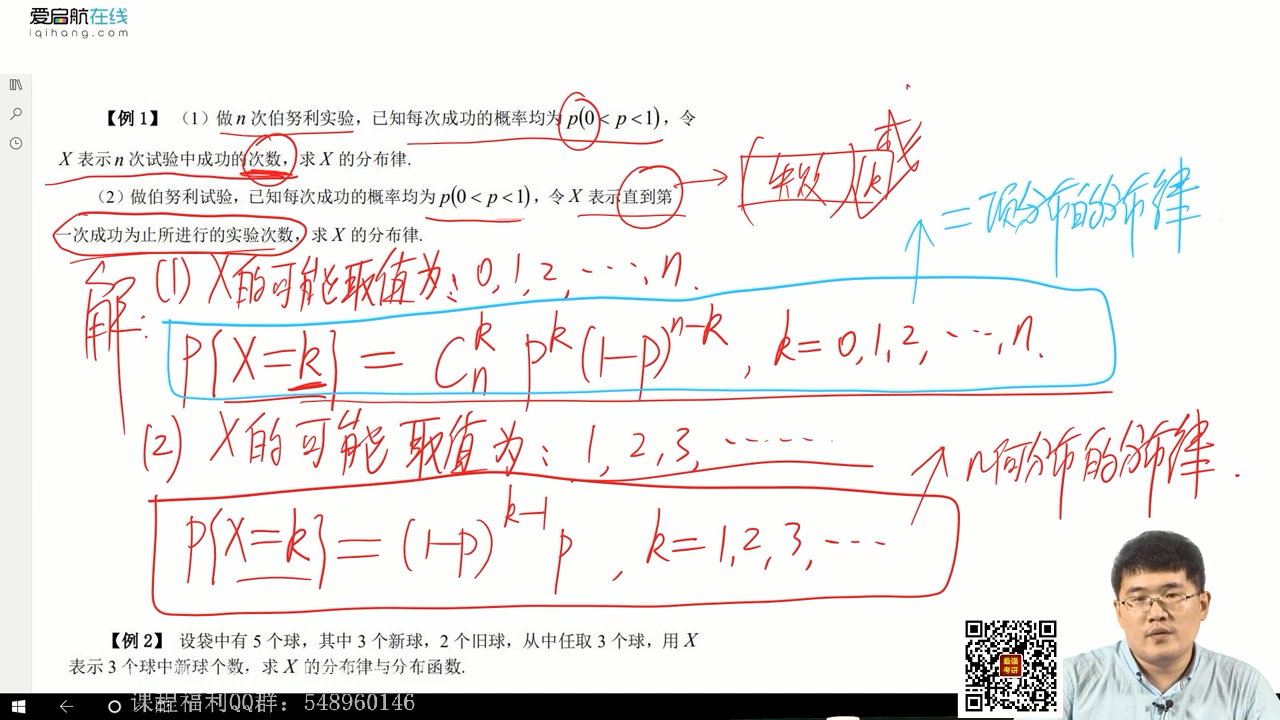 爱启航在线
iqihang.com
【例1】 （1）做 n 次伯努利实验，已知每次成功的概率均为 p(0 < p < 1)，令
X 表示 n 次试验中成功的次数，求 X 的分布律.
（2）做伯努利试验，已知每次成功的概率均为 p(0 < p < 1)，令 X 表示直到第
一次成功为止所进行的实验次数，求 X 的分布律.
失败
二项分布的分布律
解：(1) X的可能取值为：0, 1, 2, ……, n.
P{X=k} = C_n^k p^k (1-p)^{n-k}, k=0,1,2,……,n.
(2) X的可能取值为：1, 2, 3, ……
几何分布的分布律.
P{X=k} = (1-p)^{k-1} p, k=1,2,3,…
【例2】 设袋中有 5 个球，其中 3 个新球，2 个旧球，从中任取 3 个球，用 X
表示 3 个球中新球个数，求 X 的分布律与分布函数.
课程福利QQ群：548960146